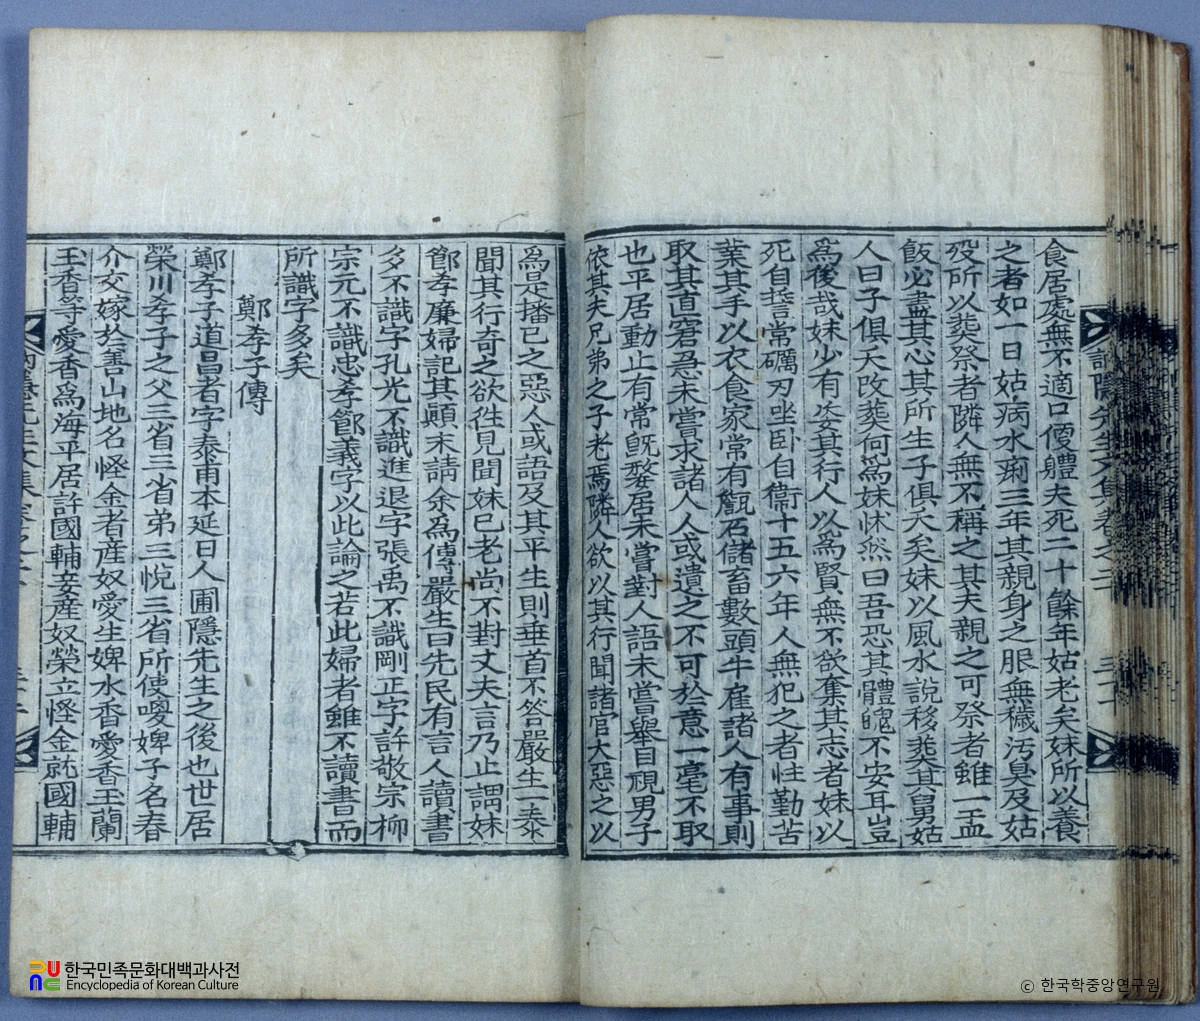 食居處無不適口便軆夫死二十餘年姑老矣妹所以養
之者如一日姑病水痢三年其親身之服無穢汚臭及姑
歿所以葬祭者隣人無不稱之其夫親之可祭者雖一盂
飯必盡其心其所生子俱夭矣妹以風水說移葬其舅姑
人曰子俱夭改葬何爲妹怵然曰吾恐其體魄不安耳豈
爲後哉妹少有姿其行人以爲賢無不欲奪其志者妹以
死自誓常礪刃坐卧自衞十五六年人無犯之者性勤苦
業其手以衣食家常有甔石儲畜數頭牛雇諸人有事則
取其直窘急未嘗求諸人人或遺之不可於意一毫不取
也平居動止有常旣嫠居未嘗對人語未嘗舉目視男子
依其夫兄弟之子老焉隣人欲以其行聞諸官大惡之以
爲是播已之惡人或語及其平生則垂首不答嚴生一泰
聞其行奇之欲徃見聞妹已老尚不對丈夫言乃止謂妹
節孝廉婦記其顚末請余為傳嚴生曰先民有言人讀書
多不識字孔光不識進退字張禹不識剛正字許敬宗柳
宗元不識忠孝節義字以此論之若此婦者雖不讀書而
所識字多矣
鄭孝子傳
鄭孝子道昌者字泰甫本延日人圃隱先生之後也世居
榮川孝子之父三省三省弟三悅三省所使嚶婢子名春
介交嫁於善山地名怪金者産奴愛生婢水香愛香玉蘭
玉香等愛香爲海平居許國輔妾産奴榮立怪金就國輔
한국민족문화대백과사전
Encyclopedia of Korean Culture
© 한국학중앙연구원